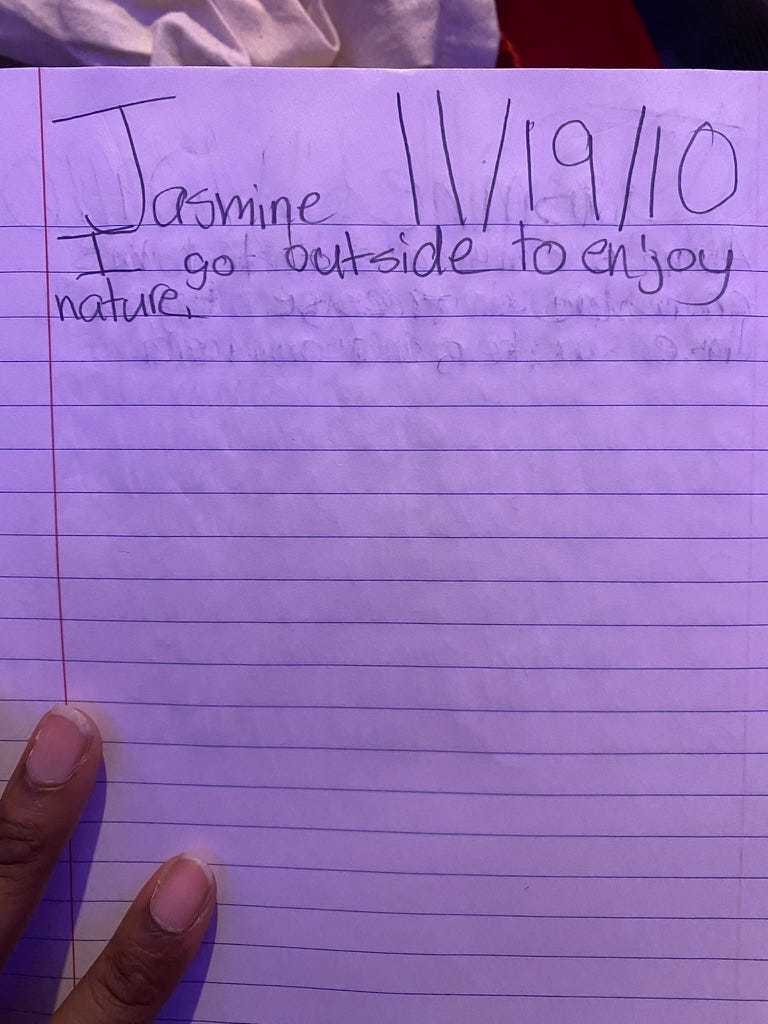 Jasmine 11/19/10
I go outside to enjoy
nature.